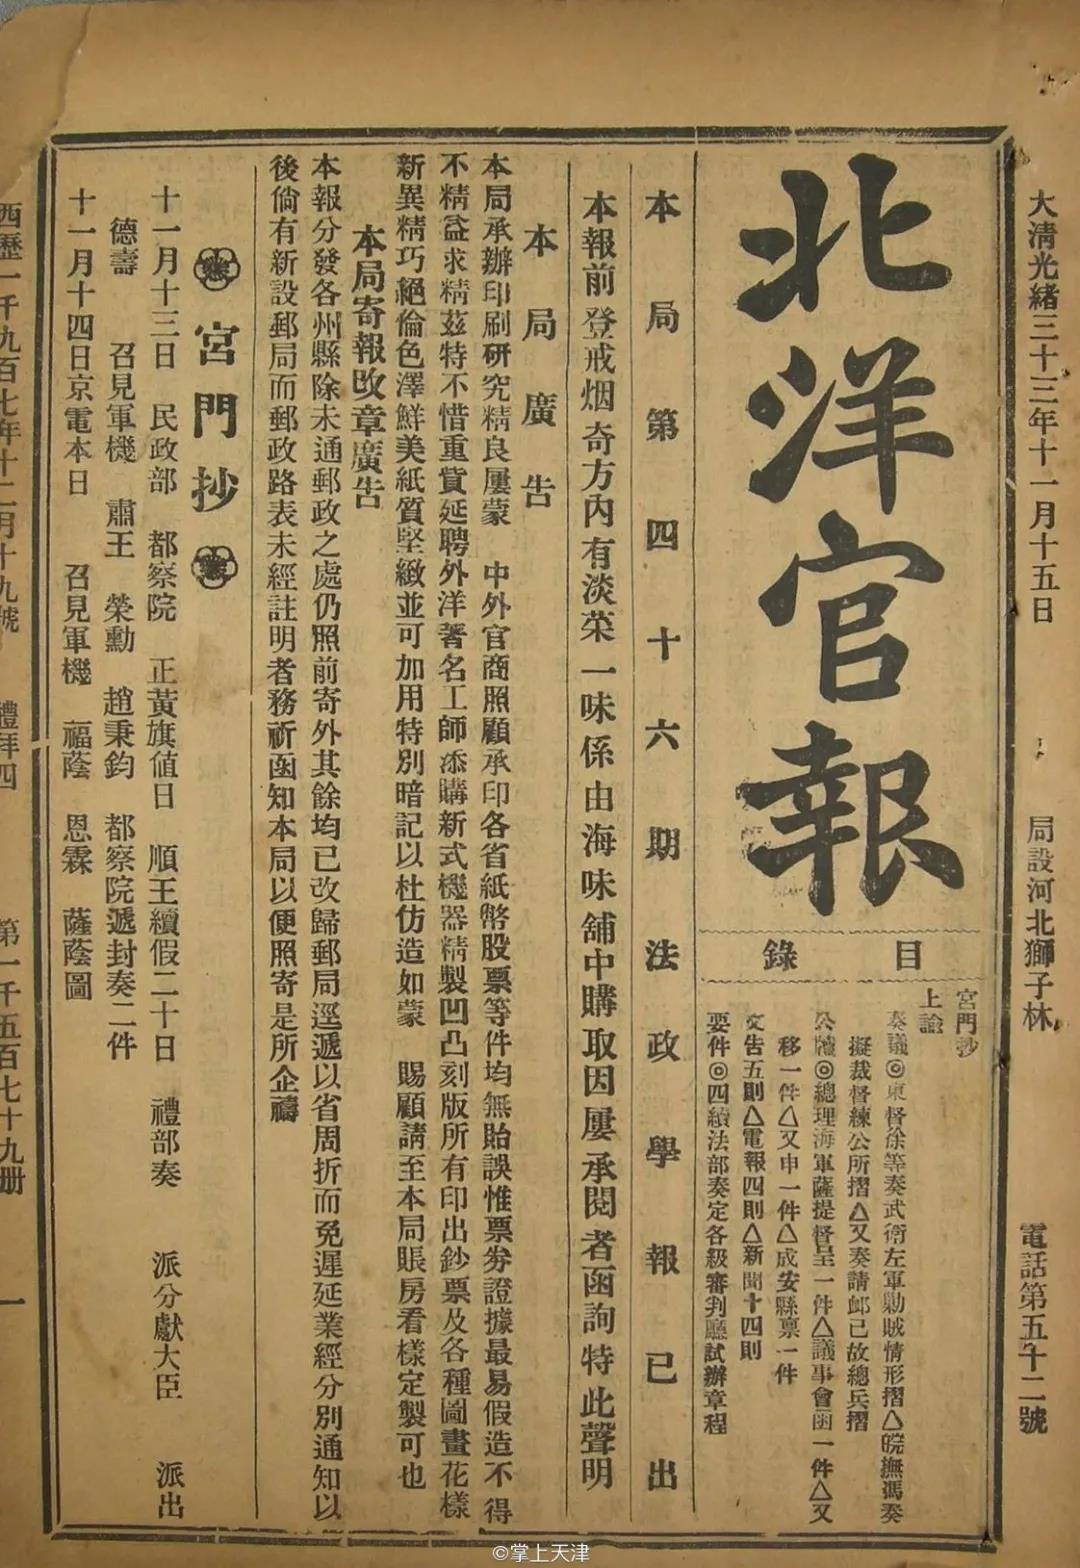 大清光緒三十三年十一月十五日　局設河北獅子林　電話第五十二號
北洋官報
目錄
宮門抄
上諭
奏議◎東督徐等奏武衛左軍勦賊情形摺△皖撫馮奏
擬裁督練公所摺△又奏請卹已故總兵摺
公牘◎總理海軍薩提督呈一件△議事會函一件△又
移一件△又申一件△成安縣稟一件
文告五則△電報四則△新聞十四則
要件◎四續法部奏定各級審判廳試辦章程
本局第四十六期法政學報已出
本報前登戒烟奇方內有淡菜一味係由海味舖中購取因屢承閱者函詢特此聲明
本局廣告
本局承辦印刷研究精良屢蒙　中外官商照顧承印各省紙幣股票等件均無貽誤惟票券證據最易假造不得
不精益求精茲特不惜重貲延聘外洋著名工師添購新式機器精製凹凸刻版所有印出鈔票及各種圖畫花樣
新異精巧絕倫色澤鮮美紙質堅緻並可加用特別暗記以杜仿造如蒙　賜顧請至本局賬房看樣定製可也
本局寄報改章廣告
本報分發各州縣除未通郵政之處仍照前寄外其餘均已改歸郵局逕遞以省周折而免遲延業經分別通知以
後倘有新設郵局而郵政路表未經註明者務祈函知本局以便照寄是所企禱
宮門抄
十一月十三日　民政部　都察院　正黃旗值日　順王續假二十日　禮部奏　派分獻大臣　派出
德壽　召見軍機　肅王　榮勳　趙秉鈞　都察院遞封奏二件
十一月十四日京電本日　召見軍機　福蔭　恩霖　薩蔭圖
西歷一千九百七年十二月十九號　禮拜四　第一千五百七十九册　一
©掌上天津